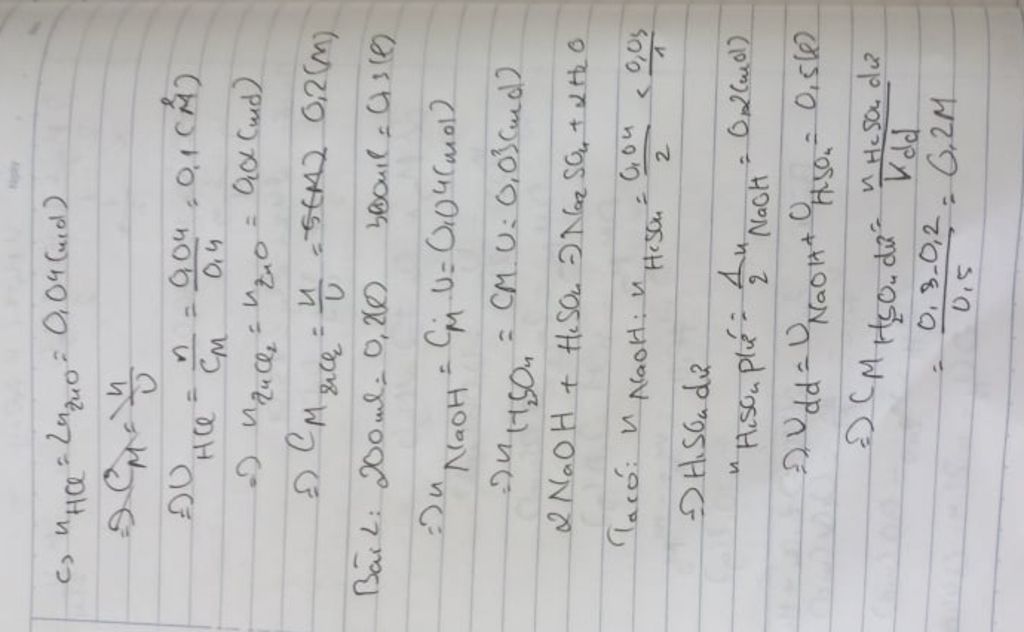 c, nHCl = 2nZnO = 0,04 (mol)
=> CM = n/V
=> VHCl = n/CM = 0,04/0,4 = 0,1 (M)
=> nZnCl2 = nZnO = 0,02 (mol)
=> CM ZnCl2 = n/V = 0,2 (M)
Bài 2: 200ml = 0,2(l) 300ml = 0,3(l)
=> nNaOH = CM.V = 0,04 (mol)
=> nH2SO4 = CM.V = 0,03 (mol)
2NaOH + H2SO4 => Na2SO4 + 2H2O
Ta có: nNaOH : nH2SO4 = 0,04/2 < 0,03/1
=> H2SO4 dư
nH2SO4 pứ = 1/2 nNaOH = 0,02 (mol)
=> Vdd = VNaOH + VH2SO4 = 0,5(l)
=> CM H2SO4 dư = nH2SO4 dư/Vdd
= 0,3-0,2/0,5 = 0,2M